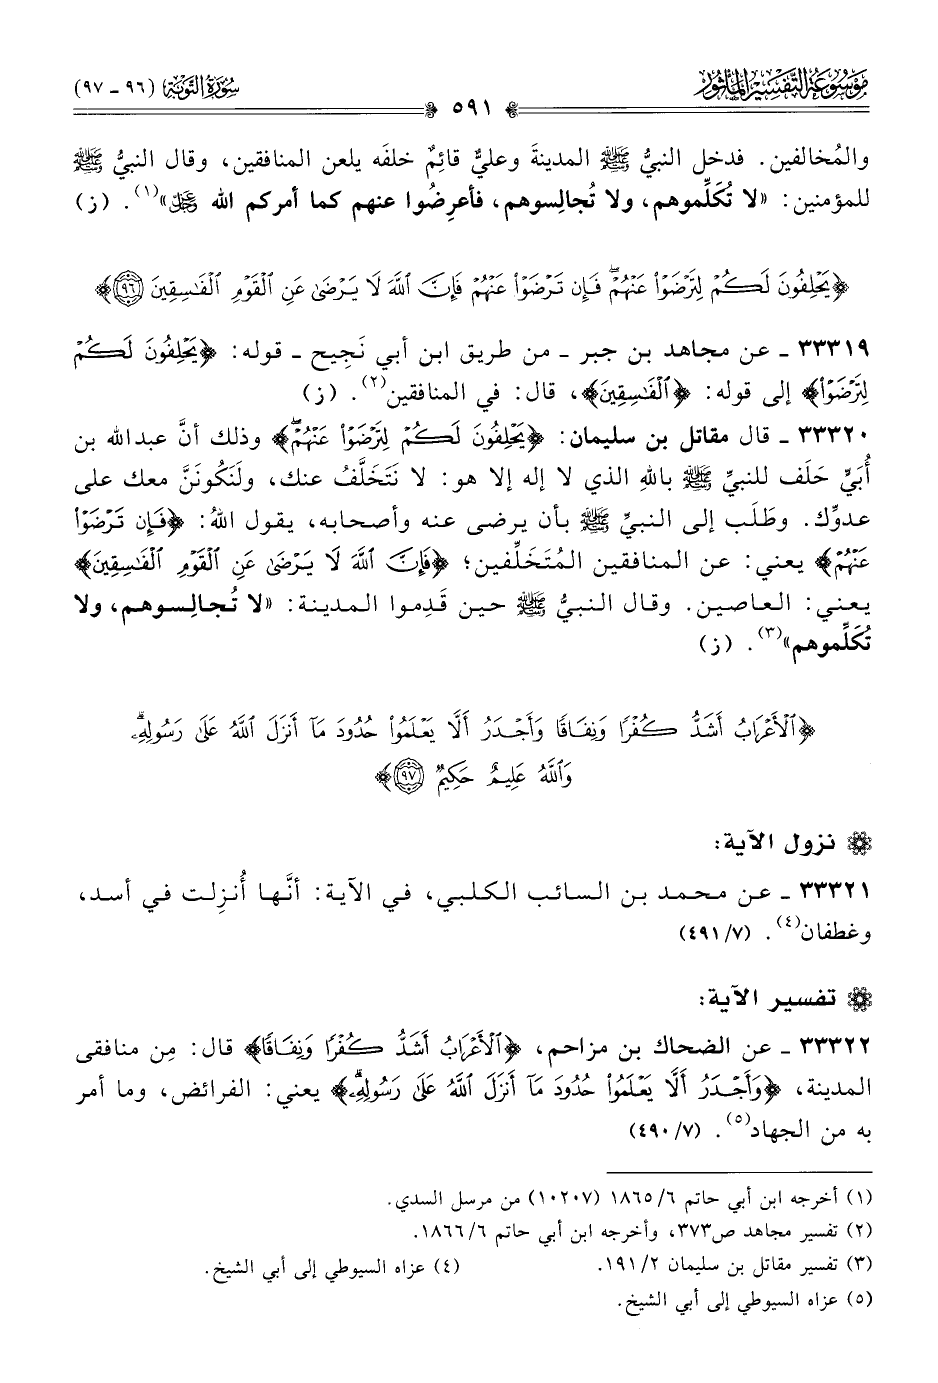 موسوعة التفسير المأثور
٥٩١
سورة التوبة (٩٦ - ٩٧)
والمُخالفين. فدخل النبيُّ ﷺ المدينةَ وعليٌّ قائِمٌ خلفَه يلعن المنافقين، وقال النبيُّ ﷺ
للمؤمنين: «لا تُكَلِّموهم، ولا تُجالِسوهم، فأعرِضُوا عنهم كما أمركم الله ﷻ»(١). (ز)
﴿يَحْلِفُونَ لَكُمْ لِتَرْضَوْا۟ عَنْهُمْ ۖ فَإِن تَرْضَوْا۟ عَنْهُمْ فَإِنَّ ٱللَّهَ لَا يَرْضَىٰ عَنِ ٱلْقَوْمِ ٱلْفَـٰسِقِينَ ٩٦﴾
٣٣٣١٩ - عن مجاهد بن جبر - من طريق ابن أبي نَجِيح - قوله: ﴿يَحْلِفُونَ لَكُمْ
لِتَرْضَوْا۟﴾ إلى قوله: ﴿ٱلْفَـٰسِقِينَ﴾، قال: في المنافقين(٢). (ز)
٣٣٣٢٠ - قال مقاتل بن سليمان: ﴿يَحْلِفُونَ لَكُمْ لِتَرْضَوْا۟ عَنْهُمْ ۖ﴾ وذلك أنَّ عبدالله بن
أُبَيٍّ حَلَف للنبيِّ ﷺ باللهِ الذي لا إله إلا هو: لا نَتَخَلَّفُ عنك، ولَنَكُونَنَّ معك على
عدوِّك. وطَلَب إلى النبيِّ ﷺ بأن يرضى عنه وأصحابه، يقول اللهُ: ﴿فَإِن تَرْضَوْا۟
عَنْهُمْ﴾ يعني: عن المنافقين المُتَخَلِّفين؛ ﴿فَإِنَّ ٱللَّهَ لَا يَرْضَىٰ عَنِ ٱلْقَوْمِ ٱلْفَـٰسِقِينَ﴾
يعني: العاصين. وقال النبيُّ ﷺ حين قَدِموا المدينة: «لا تُجالِسوهم، ولا
تُكَلِّموهم»(٣). (ز)
﴿ٱلْأَعْرَابُ أَشَدُّ كُفْرًا وَنِفَاقًا وَأَجْدَرُ أَلَّا يَعْلَمُوا۟ حُدُودَ مَآ أَنزَلَ ٱللَّهُ عَلَىٰ رَسُولِهِۦ ۗ
وَٱللَّهُ عَلِيمٌ حَكِيمٌ ٩٧﴾
نزول الآية:
٣٣٣٢١ - عن محمد بن السائب الكلبي، في الآية: أنَّها أُنزِلت في أسد،
وغطفان(٤). (٧/ ٤٩١)
تفسير الآية:
٣٣٣٢٢ - عن الضحاك بن مزاحم، ﴿ٱلْأَعْرَابُ أَشَدُّ كُفْرًا وَنِفَاقًا﴾ قال: مِن منافقي
المدينة، ﴿وَأَجْدَرُ أَلَّا يَعْلَمُوا۟ حُدُودَ مَآ أَنزَلَ ٱللَّهُ عَلَىٰ رَسُولِهِۦ ۗ﴾ يعني: الفرائض، وما أمر
به من الجهاد(٥). (٧/ ٤٩٠)
(١) أخرجه ابن أبي حاتم ٦/ ١٨٦٥ (١٠٢٠٧) من مرسل السدي.
(٢) تفسير مجاهد ص٣٧٣، وأخرجه ابن أبي حاتم ٦/ ١٨٦٦.
(٣) تفسير مقاتل بن سليمان ٢/ ١٩١.
(٤) عزاه السيوطي إلى أبي الشيخ.
(٥) عزاه السيوطي إلى أبي الشيخ.